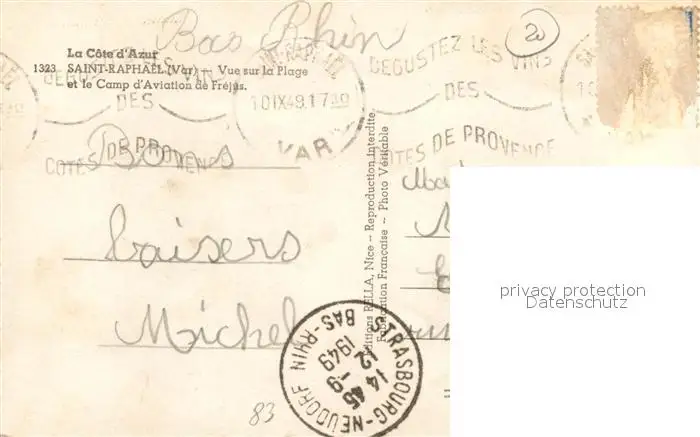 Bas Rhin
20
La Côte d'Azur
1323 SAINT-RAPHAËL (Var) — Vue sur la Plage
et le Camp d'Aviation de Fréjus.
DEGUSTEZ LES VINS
DES
COTES DE PROVENCE
ST-RAPHAEL
10 IX 49. 17 30
VAR
DEGUSTEZ LES VINS
DES
COTES DE PROVENCE
Bons
baisers
Michel
Editions RELLA, Nice — Reproduction Interdite.
Fabrication Française — Photo Véritable
STRASBOURG-NEUDORF
BAS-RHIN
14 45
12 -9
1949
83
privacy protection
Datenschutz